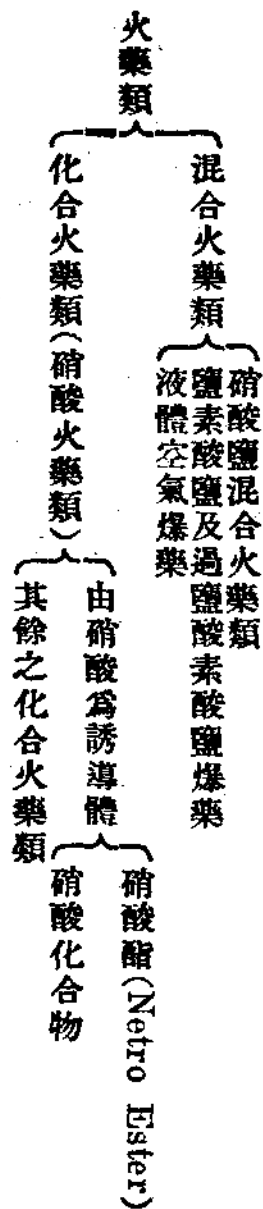 火藥類
混合火藥類
硝酸鹽混合火藥類
鹽素酸鹽及過鹽酸素酸鹽爆藥
液體空氣爆藥
化合火藥類(硝酸火藥類)
由硝酸爲誘導體
硝酸酯(Netro Ester)
硝酸化合物
其餘之化合火藥類